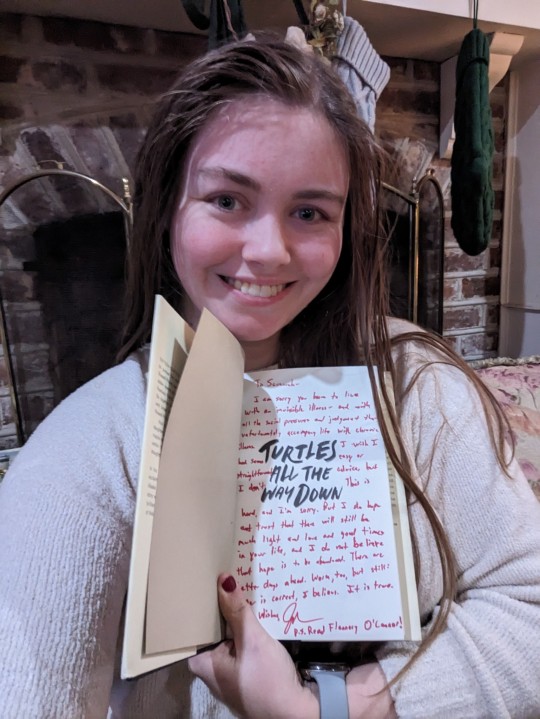 To Savannah-
I am sorry you have to live
with an invisible illness- and with
all the social pressures and judgement that
unfortunately accompany life with chronic
illness. I wish I
had some easy or
straightforward advice, but
I don't. This is
TURTLES
ALL THE
WAY DOWN
hard, and I'm sorry. But I do hope
and trust that there will still be
much light and love and good times
in your life, and I do not believe
that hope is to be abandoned. There are
days ahead. Worse, too, but still:
is correct, I believe. It is true.
Wishes
P.S. Read Flannery O'Connor!